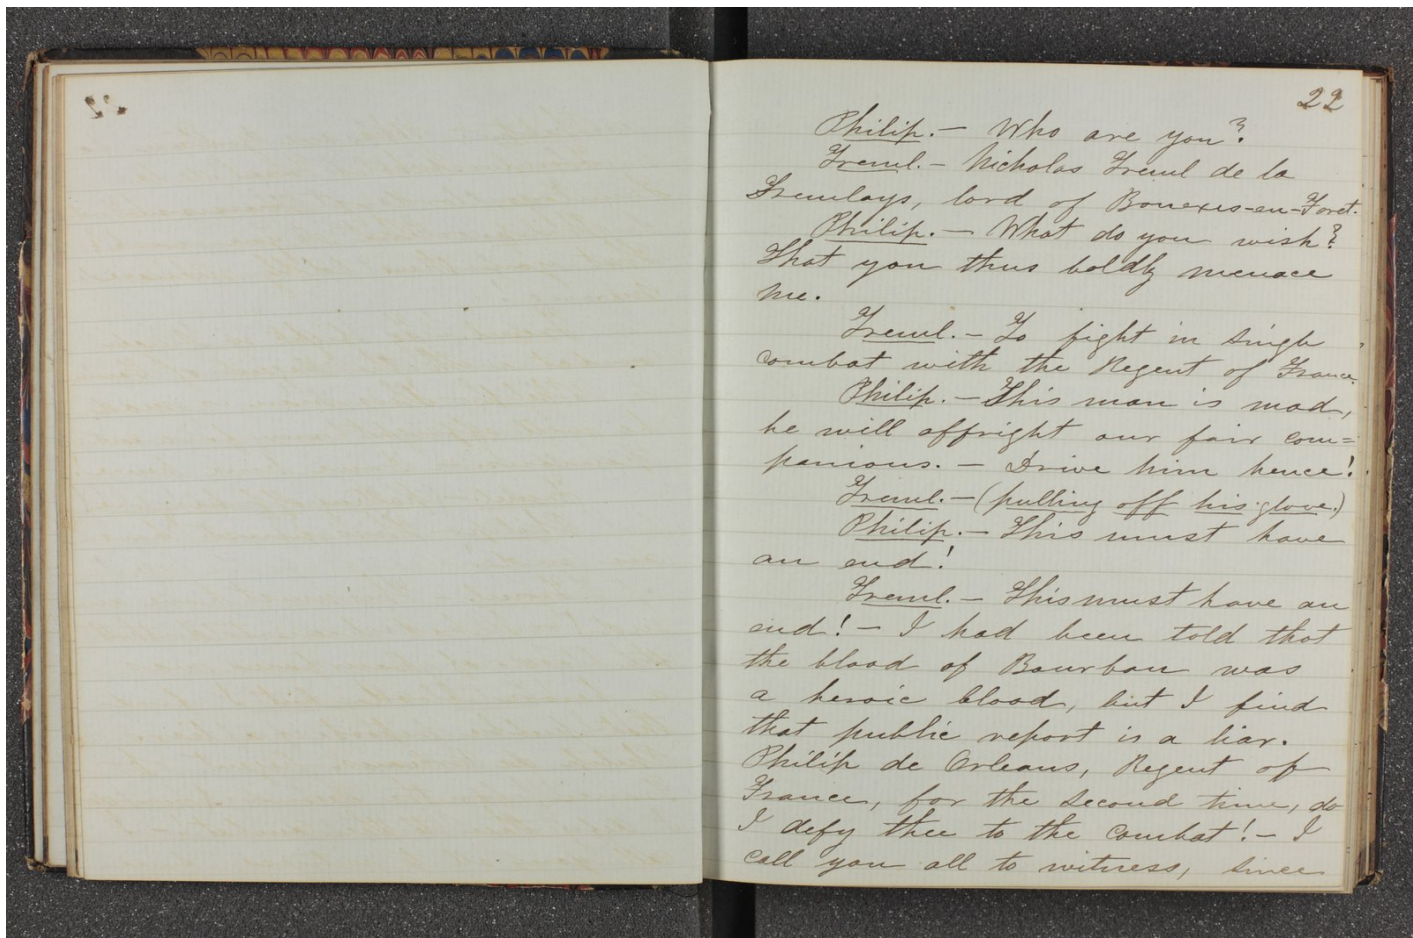 22
Philip. — Who are you?
Treml. — Nicholas Treml de la
Tremlays, lord of Bouexis-en-Foret.
Philip. — What do you wish?
That you thus boldly menace
me.
Treml. — To fight in single
combat with the Regent of France.
Philip. — This man is mad,
he will affright our fair com=
panions. — Drive him hence!
Treml. — (pulling off his glove.)
Philip. — This must have
an end!
Treml. — This must have an
end! — I had been told that
the blood of Bourbon was
a heroic blood, but I find
that public report is a liar.
Philip de Orleans, Regent of
France, for the second time, do
I defy thee to the combat! — I
call you all to witness, since